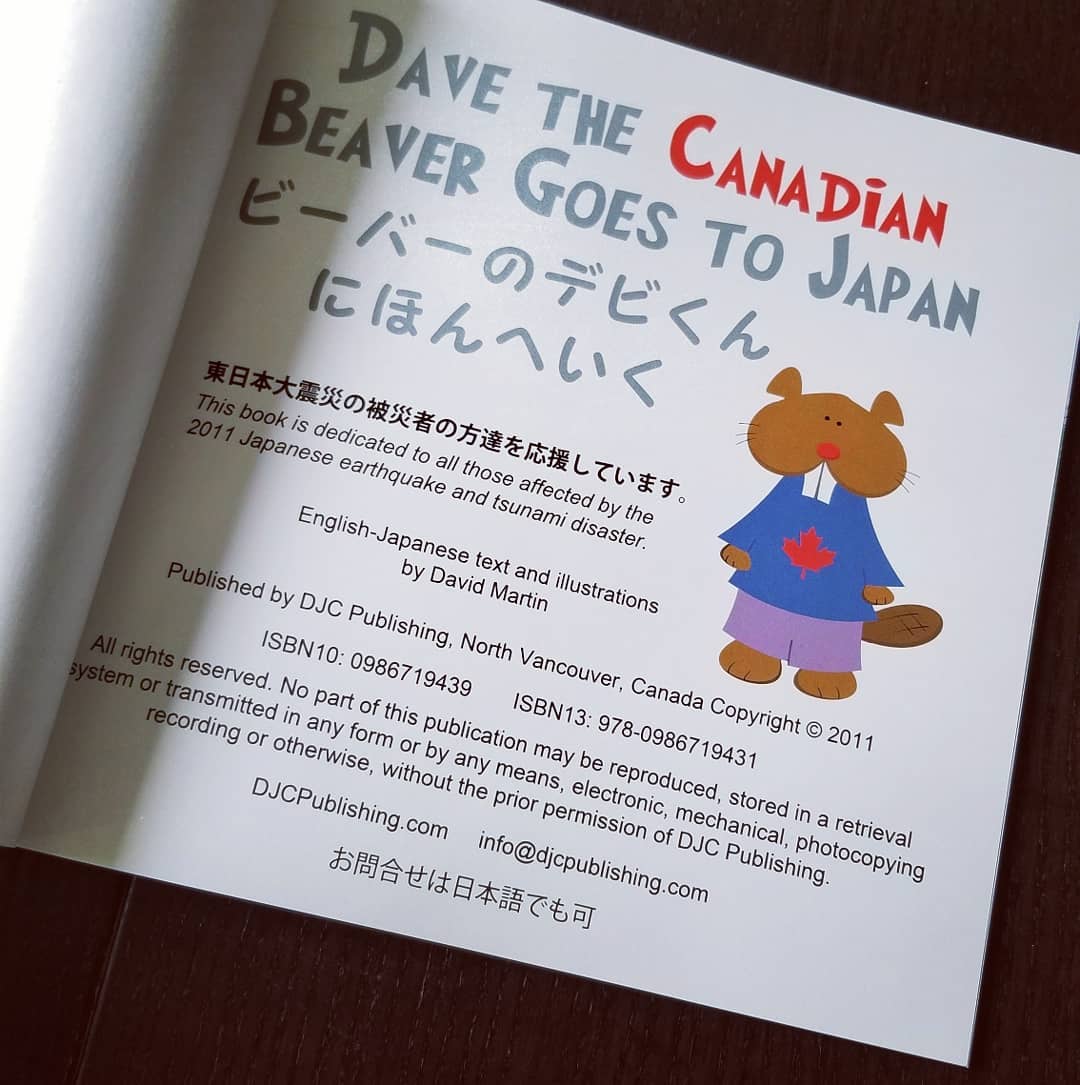 DAVE THE CANADiAN
BEAVER GOES TO JAPAN
ビーバーのデビくん
にほんへいく
東日本大震災の被災者の方達を応援しています。
This book is dedicated to all those affected by the
2011 Japanese earthquake and tsunami disaster.
English-Japanese text and illustrations
by David Martin
Published by DJC Publishing, North Vancouver, Canada Copyright © 2011
ISBN10: 0986719439 ISBN13: 978-0986719431
All rights reserved. No part of this publication may be reproduced, stored in a retrieval
system or transmitted in any form or by any means, electronic, mechanical, photocopying
recording or otherwise, without the prior permission of DJC Publishing.
DJCPublishing.com info@djcpublishing.com
お問合せは日本語でも可